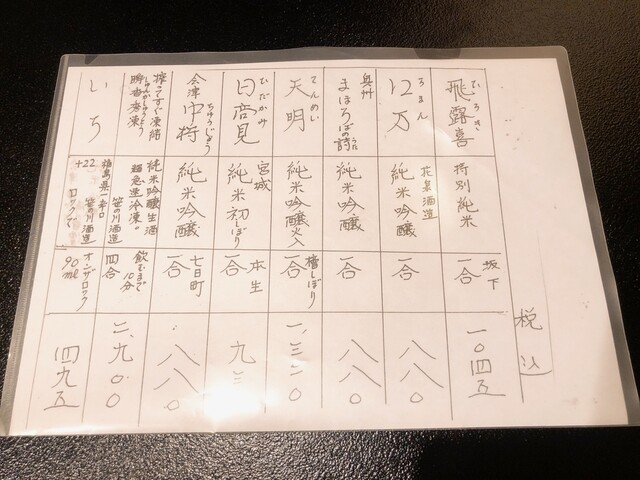 税込
飛露喜
ひろき
特別純米
坂下
一合
一〇四五
ロ万
ろまん
花泉酒造
純米吟醸
一合
八八〇
奥州
まほろばの詩
うた
純米吟醸
一合
八八〇
天明
てんめい
純米吟醸火入
槽しぼり
一合
一、三二〇
日高見
ひだかみ
宮城
純米初しぼり
本生
一合
会津中将
ちゅうじょう
純米吟醸
七日町
一合
八八〇
搾ってすぐ凍結
瞬香凍凍
純米吟醸生酒
超急速冷凍。
笹の川酒造
飲むまで
10分
四合
二、九〇〇
いち
福島県一辛口
笹の川酒造
+22
ロックで
オンザロック
90ml
四九五